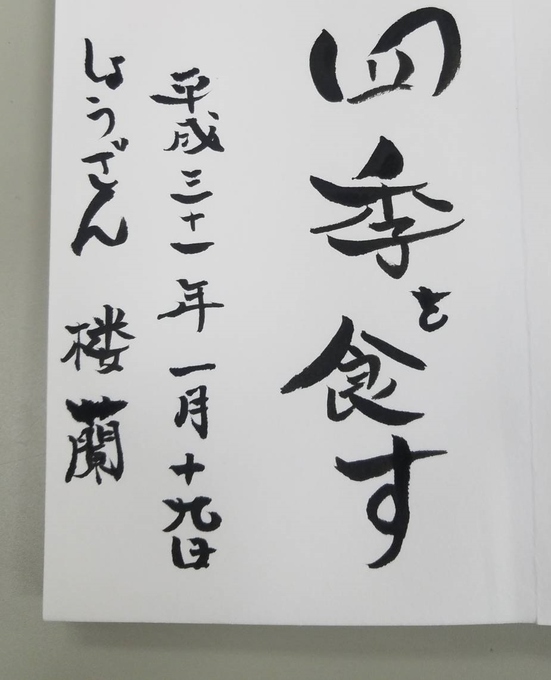 四季を食す
平成三十一年一月十九日
しょうざん 楼蘭